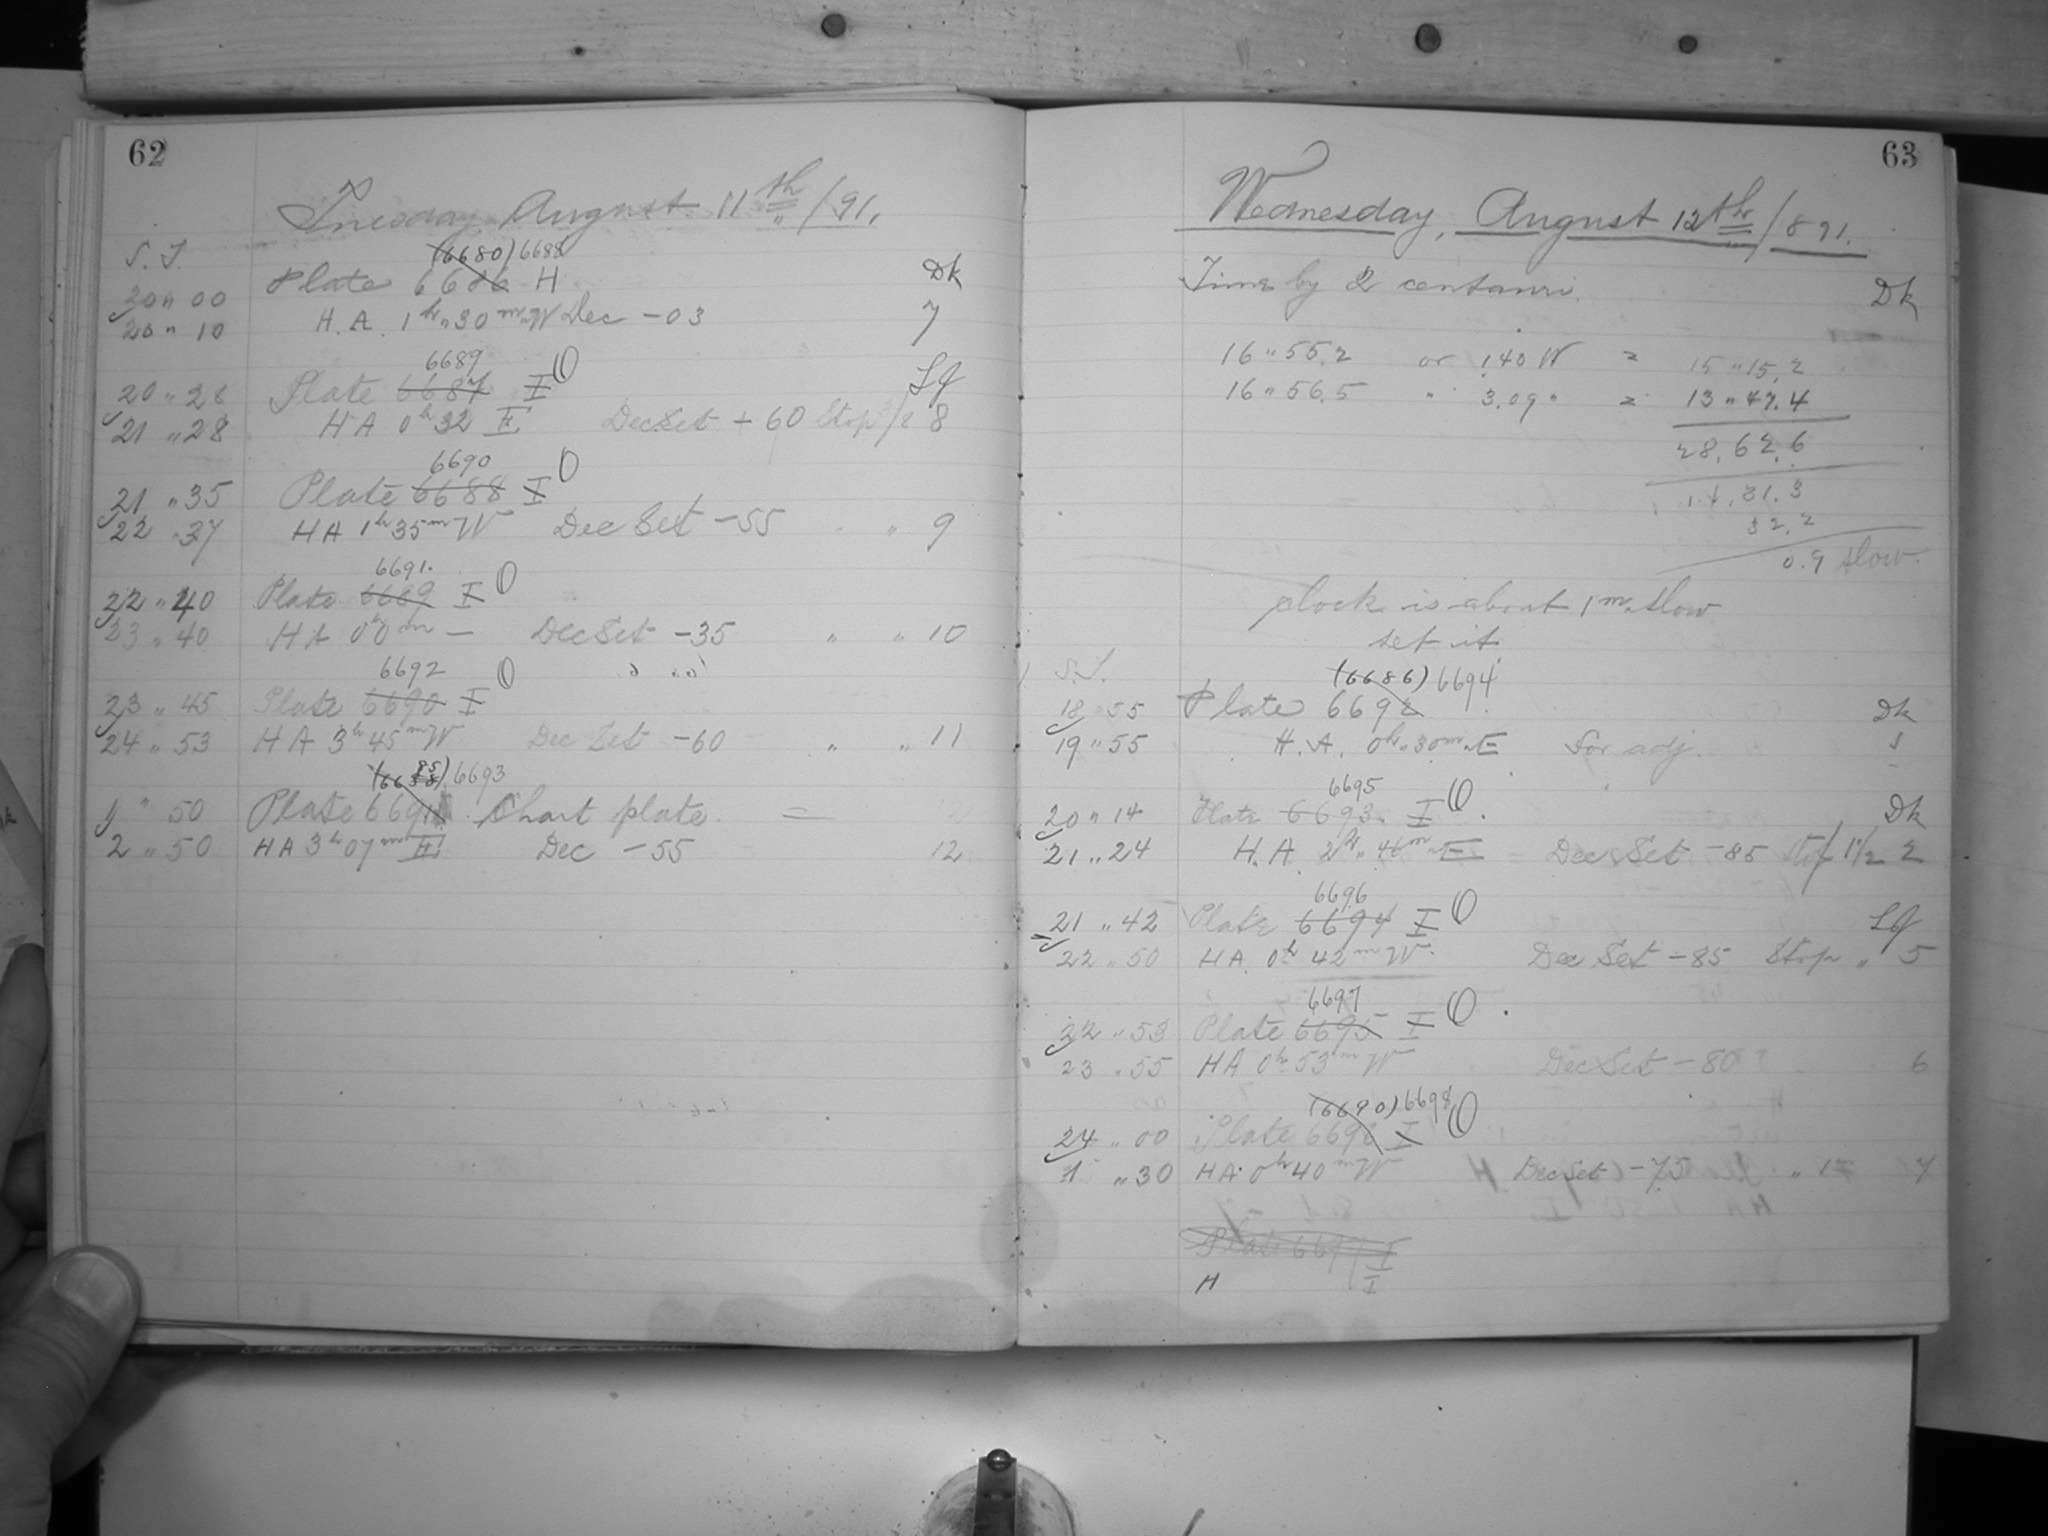 62
Tuesday August 11th /91.
S. T.
(6680) 6688
20 " 00 Plate 6686 H Dk
20 " 10 H. A. 1hr "30 m W Dec -03 7
6689
20 " 28 Plate 6687 I O
21 " 28 HA 0h 32 E Dec Set + 60 Stop 8
6690
21 " 35 Plate 6688 I O
22 " 37 HA 1h 35m W Dec Set -55 " 9
6691.
22 " 40 Plate 6689 I O
23 " 40 HA 0h 0m — Dec Set -35 " " 10
6692
23 " 45 Plate 6690 I O
24 " 53 HA 3h 45m W Dec Set -60 " " 11
6693
1 " 50 Plate 6691 Chart plate. =
2 " 50 HA 3h 07m E Dec -55 12
63
Wednesday, August 12th /891.
Time by centauri. Dk
16 " 55.2 or 1.40 W = 15 " 15.2
16 " 56.5 " 3.09 " = 13 " 47.4
28.62.6
14.31.3
32.2
0.9 slow.
clock is about 1m slow
set it
S. T.
(6686) 6694
18 " 55 Plate 6692 Dk
19 " 55 H. A. 0h "30m E for adj.
6695
20 " 14 Plate 6693 I O Dk
21 " 24 H. A. 2h " 46m E Dec Set -85 Stop 1 1/2 2
6696
21 " 42 Plate 6694 I O
22 " 50 HA 0h 42m W. Dec Set -85 Stop " 5
6697
22 " 53 Plate 6695 I O
23 " 55 HA 0h 53m W Dec Set -80 6
(6690) 6698
24 " 00 Plate 6696 I O
1 " 30 HA 0h 40m W Dec Set -75 " 7
Plate 6697 I
H I